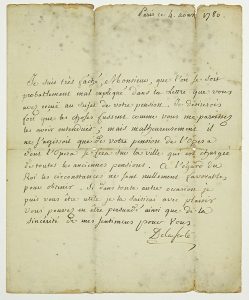 Paris ce 4. aoust 1780.
Je suis très faché, Monsieur, que l'on se soit
probablement mal expliqué dans la Lettre que vous
avez reçue au sujet de votre pension. Je desirerois
fort que les choses fussent comme vous me paroissez
les avoir entendues; mais malheureusement il
ne s'agissoit que de votre pension de l'Opera
dont l'Opera se sur la ville, qui est chargée
de toutes les anciennes pensions. A l'égard du
Roi les circonstances ne sont nullement favorables
pour obtenir. Si dans toute autre occasion je
puis vous être utile je la saisirai avec plaisir
Vous pouvez en être persuadé ainsi que de la
sincerité de mes sentimens pour Vous.